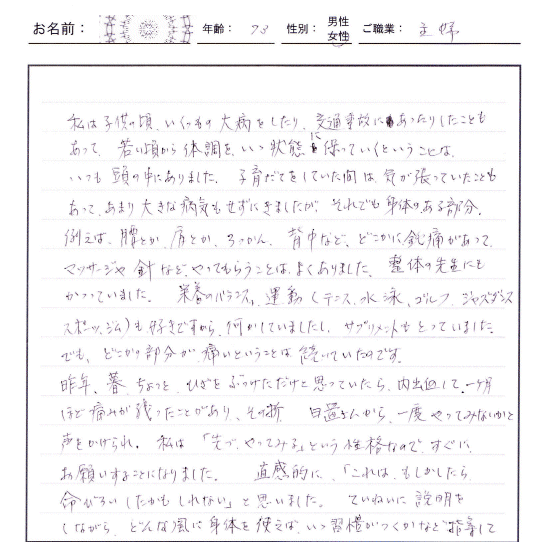 お名前： 年齢： 73 性別： 男性 女性 ご職業： 主婦
私は子供の頃、いくつもの大病をしたり、交通事故にあったりしたことも
あって、若い頃から体調を、いい状態に保っていくということは、
いつも頭の中にありました。子育てをしていた間は気が張っていたことも
あって、あまり大きな病気もせずにきましたが、それでも身体のある部分、
例えば、腰とか、肩とか、ろっかん、背中など、どこかに鈍痛があって、
マッサージや針など、やってもらうことは、よくありました。整体の先生にも
かかっていました。栄養のバランス、運動（テニス、水泳、ゴルフ、ジャズダンス
スポーツ、ジム）も好きですから、何かしていましたし、サプリメントもとっていました。
でも、どこかの部分が痛いということは続いていたのです。
昨年、暮、ちょっと、ひざをぶつけただけと思っていたら、内出血して、一ヶ月
ほど痛みが残ったことがあり、その折、日置さんから、一度やってみないかと
声をかけられ、私は「先づ、やってみる」という性格なので、すぐに、
お願いすることになりました。直感的に、「これは、もしかしたら
命びろいしたかもしれない」と思いました。ていねいに説明を
しながら、どんな風に身体を使えば、いい習慣がつくかなど指導して